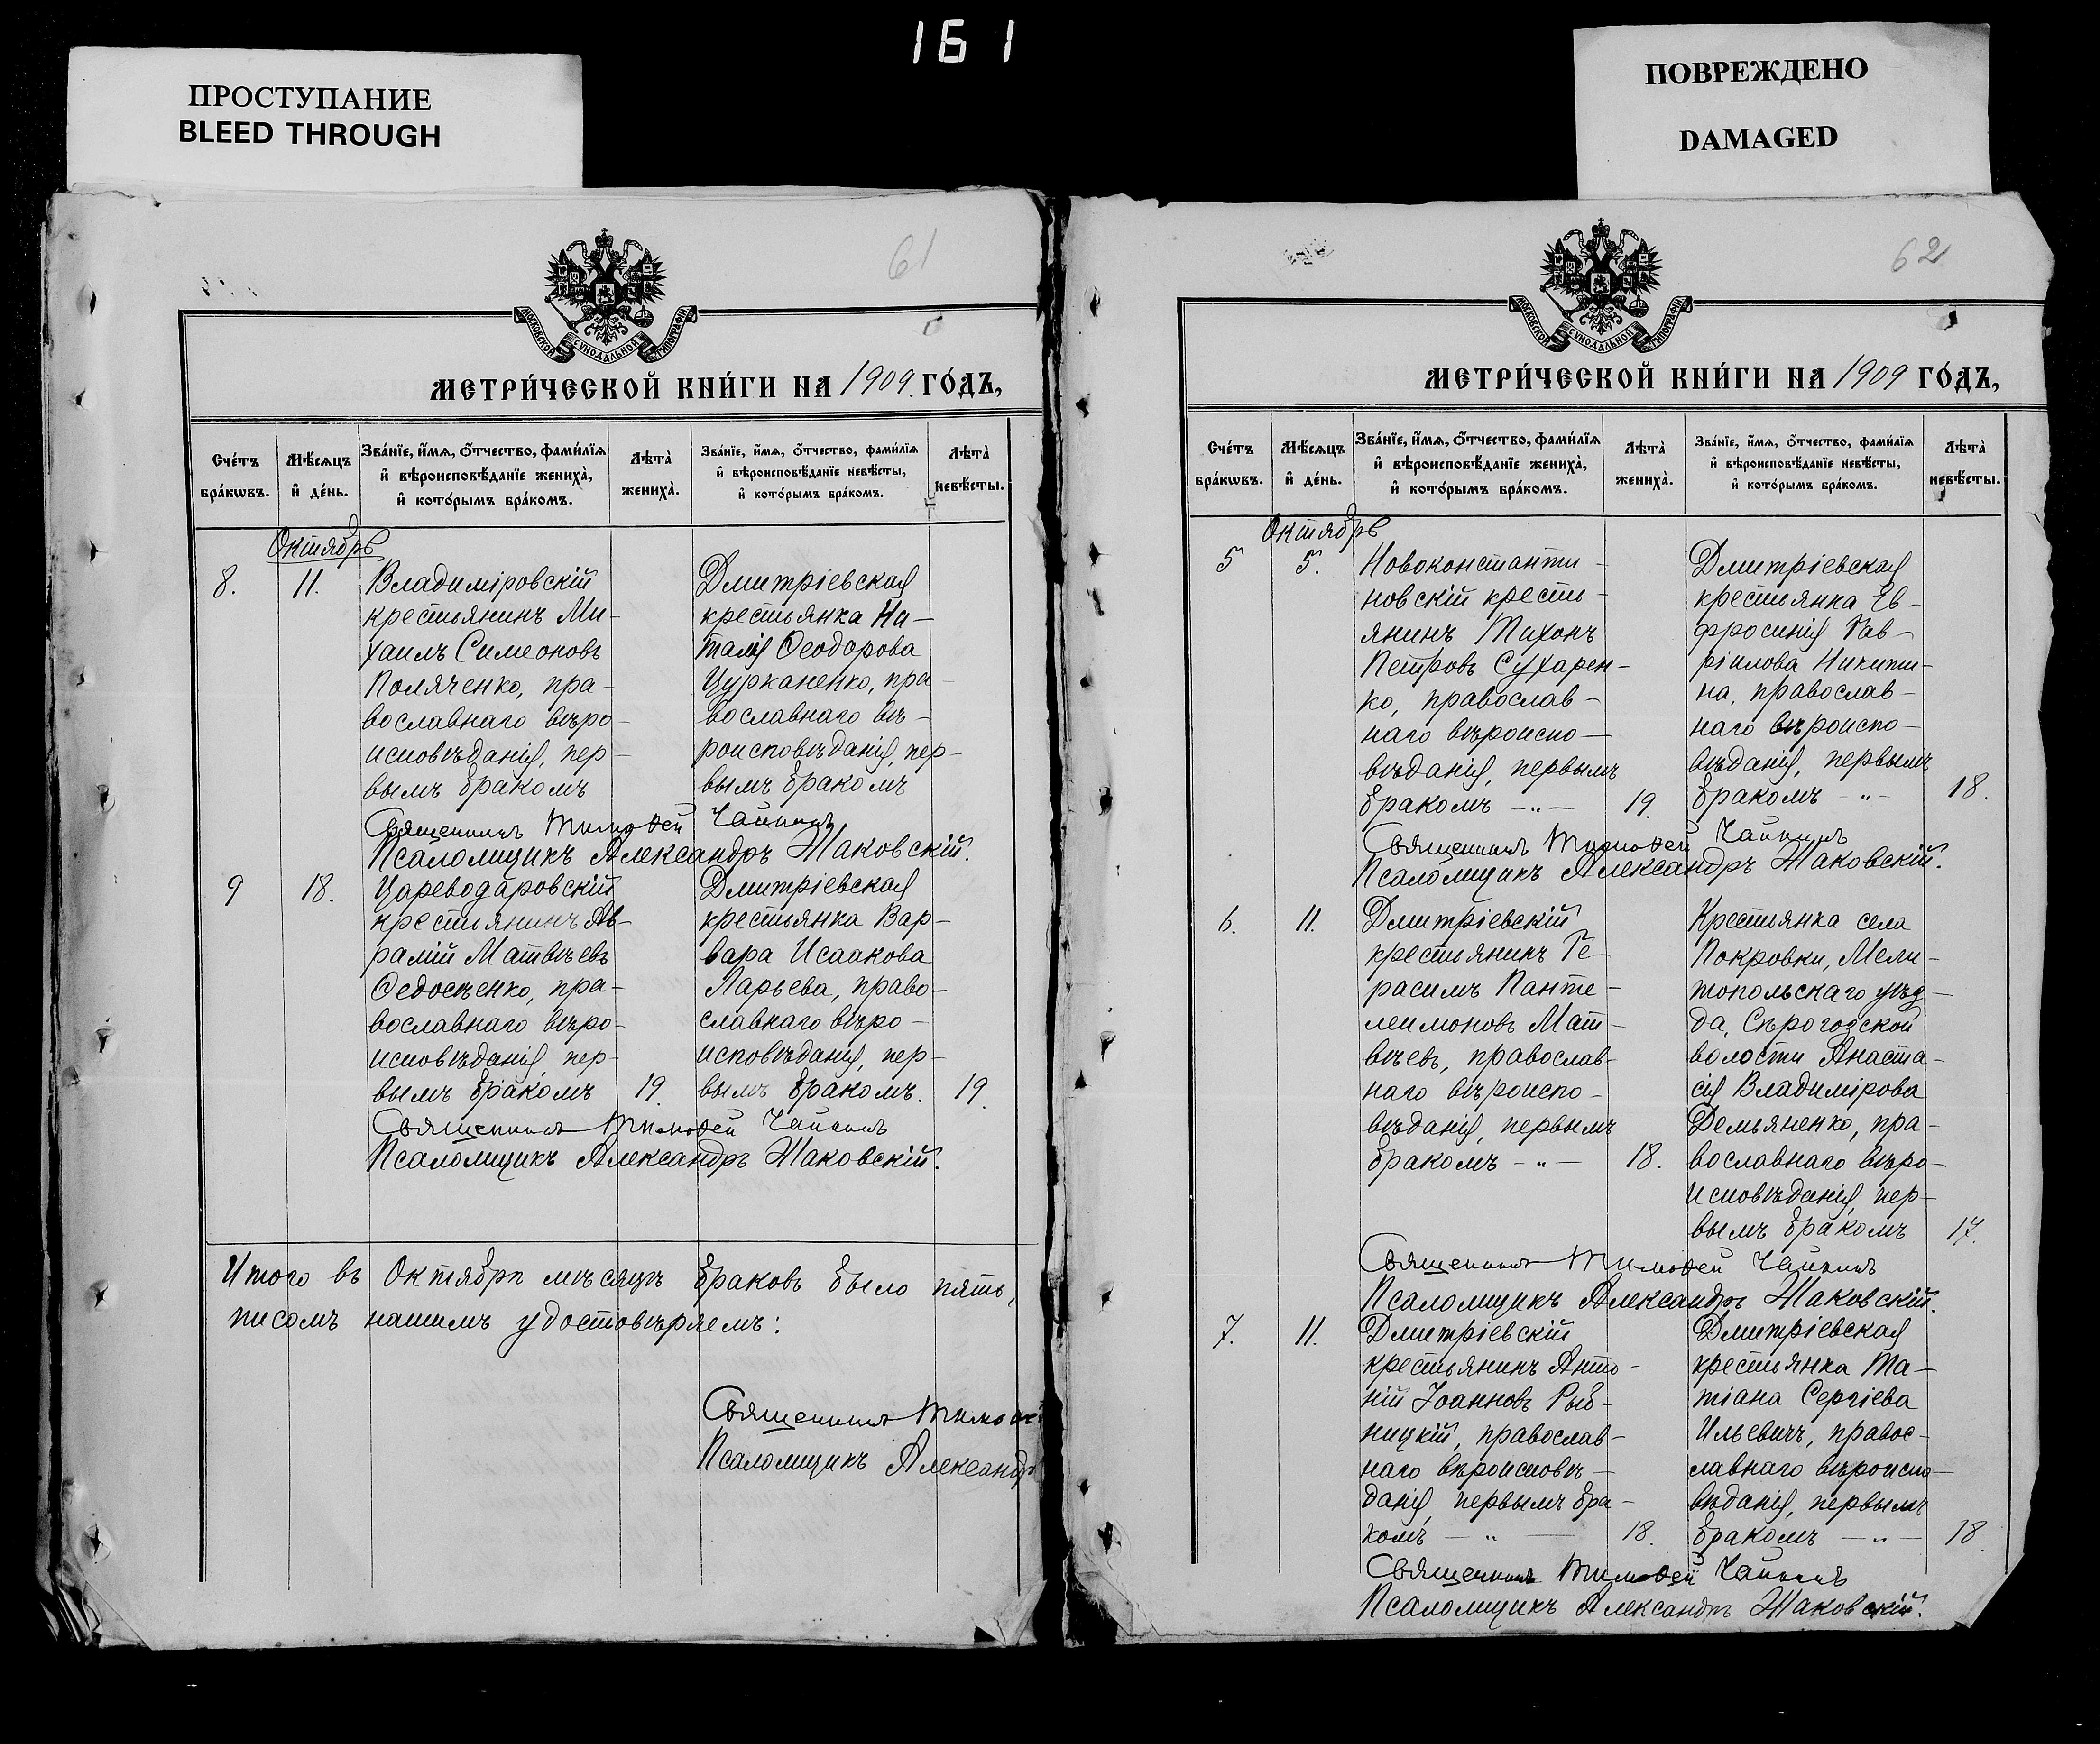 161
ПРОСТУПАНИЕ
BLEED THROUGH
ПОВРЕЖДЕНО
DAMAGED
61
МОСКОВСКОЙ СѴНОДАЛЬНОЙ ТИПОГРАФІИ
МЕТРИ́ЧЕСКОЙ КНИ́ГИ НА 1909. ГО́ДЪ,
Сче́тъ бра́кѡвъ.
Мѣ́сяцъ и҆ де́нь.
Зва́нїе, и҆́мѧ, ѻ҆́тчество, фами́лїѧ
и҆ вѣроисповѣ́данїе жениха̀,
и҆ кото́рымъ бра́комъ.
Лѣта̀ жениха̀.
Зва́нїе, и҆́мѧ, ѻ҆́тчество, фами́лїѧ
и҆ вѣроисповѣ́данїе невѣ́сты,
и҆ кото́рымъ бра́комъ.
Лѣта̀ невѣ́сты.
Октябрь
8.
11.
Владиміровскій
крестьянинъ Ми-
хаилъ Симеоновъ
Поляченко, пра-
вославнаго вѣро-
исповѣданія, пер-
вымъ бракомъ
Дмитріевская
крестьянка На-
талія Ѳеодорова
Цурканенко, пра-
вославнаго вѣ-
роисповѣданія, пер-
вымъ бракомъ
Священникъ Тимофей Чайкинъ
Псаломщикъ Александръ Жаковскій.
9
18.
Цареводаровскій
крестьянинъ Ав-
рамій Матвѣевъ
Ѳедосѣенко, пра-
вославнаго вѣро-
исповѣданія, пер-
вымъ бракомъ
19.
Дмитріевская
крестьянка Вар-
вара Исаакова
Ларьева, право-
славнаго вѣро-
исповѣданія, пер-
вымъ бракомъ.
19.
Священникъ Тимофей Чайкинъ
Псаломщикъ Александръ Жаковскій.
Итого въ Октябрѣ мѣсяцѣ браковъ было пять,
писомъ нашимъ удостовѣряемъ:
Священникъ Тимофей
Псаломщикъ Александръ
62
МОСКОВСКОЙ СѴНОДАЛЬНОЙ ТИПОГРАФІИ
МЕТРИ́ЧЕСКОЙ КНИ́ГИ НА 1909 ГО́ДЪ,
Сче́тъ бра́кѡвъ.
Мѣ́сяцъ и҆ де́нь.
Зва́нїе, и҆́мѧ, ѻ҆́тчество, фами́лїѧ
и҆ вѣроисповѣ́данїе жениха̀,
и҆ кото́рымъ бра́комъ.
Лѣта̀ жениха̀.
Зва́нїе, и҆́мѧ, ѻ҆́тчество, фами́лїѧ
и҆ вѣроисповѣ́данїе невѣ́сты,
и҆ кото́рымъ бра́комъ.
Лѣта̀ невѣ́сты.
Октябрь
5
5.
Новоконстанти-
новскій кресть-
янинъ Тихонъ
Петровъ Сухарен-
ко, православ-
наго вѣроиспо-
вѣданія, первымъ
бракомъ -„-
19.
Дмитріевская
крестьянка Ев-
фросинія Гав-
ріилова Никити-
на, православ-
наго вѣроиспо-
вѣданія, первымъ
бракомъ -„-
18.
Священникъ Тимофей Чайкинъ
Псаломщикъ Александръ Жаковскій.
6.
11.
Дмитріевскій
крестьянинъ Ге-
расимъ Панте-
леимоновъ Мат-
вѣевъ, православ-
наго вѣроиспо-
вѣданія, первымъ
бракомъ -„-
18.
Крестьянка села
Покровки, Мели-
топольскаго уѣз-
да, Сѣрогозской
волости Анаста-
сія Владимірова
Демьяненко, пра-
вославнаго вѣро-
исповѣданія, пер-
вымъ бракомъ
17.
Священникъ Тимофей Чайкинъ
Псаломщикъ Александръ Жаковскій.
7.
11.
Дмитріевскій
крестьянинъ Анто-
ній Іоанновъ Рыб-
ницкій, православ-
наго вѣроисповѣ-
данія, первымъ бра-
комъ -„-
18.
Дмитріевская
крестьянка Та-
тіана Сергіева
Ильевичъ, правос-
лавнаго вѣроиспо-
вѣданія, первымъ
бракомъ -„-
18.
Священникъ Тимофей Чайкинъ
Псаломщикъ Александръ Жаковскій.